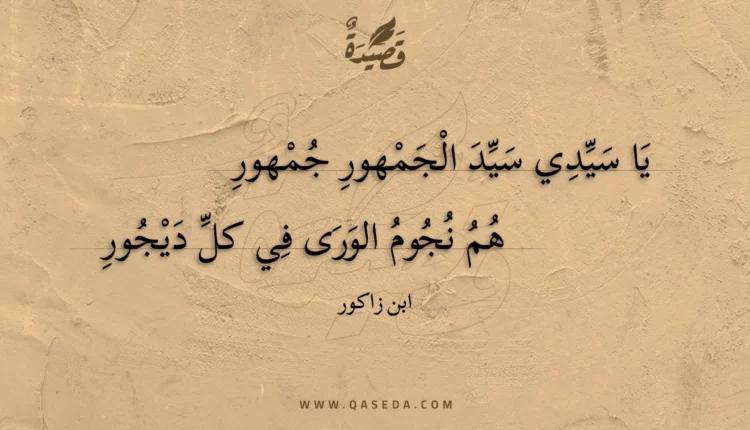 قَصِيدَةٌ
يَا سَيِّدِي سَيِّدَ الْجَمْهورِ جُمْهورِ
هُمُ نُجُومُ الوَرَى فِي كلِّ دَيْجُورِ
ابن زاكور
WWW.QASEDA.COM